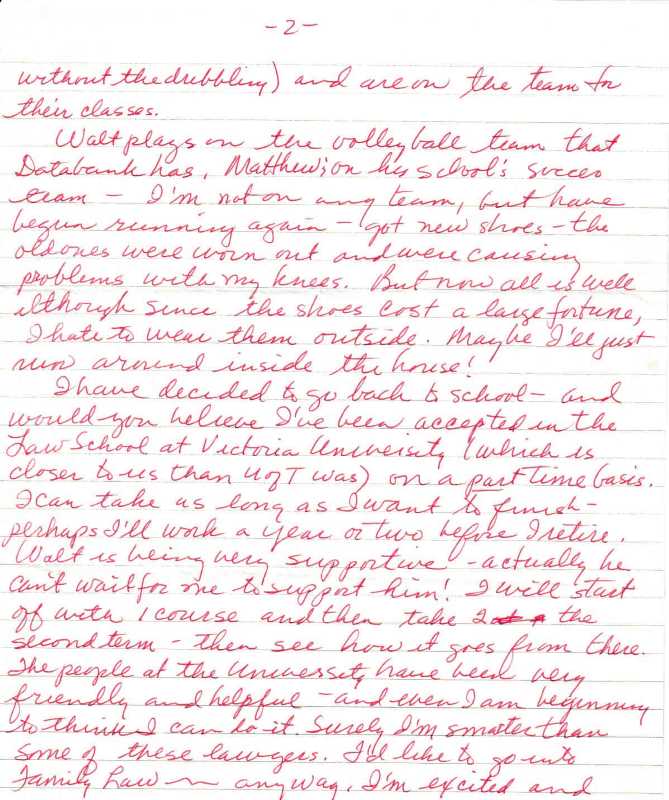 -2-
without the dribbling) and are on the team for
their classes.
Walt plays on the volleyball team that
Databank has, Matthew; on his school's succeo
team - I'm not on any team, but have
begun running again - got new shoes - the
old ones were worn out and were causing
problems with my knees. But now all is well
although since the shoes cost a large fortune,
I hate to wear them outside. Maybe I'll just
run around inside the house!
I have decided to go back to school - and
would you believe I've been accepted in the
Law School at Victoria University (which is
closer to us than U of T was) on a part time basis.
I can take as long as I want to finish -
perhaps I'll work a year or two before I retire.
Walt is being very supportive - actually he
can't wait for me to support him! I will start
off with 1 course and then take 2 the
second term - then see how it goes from there.
The people at the University have been very
friendly and helpful - and even I am beginning
to think I can do it. Surely I'm smarter than
some of these lawyers. I'd like to go into
Family Law ~ anyway, I'm excited and